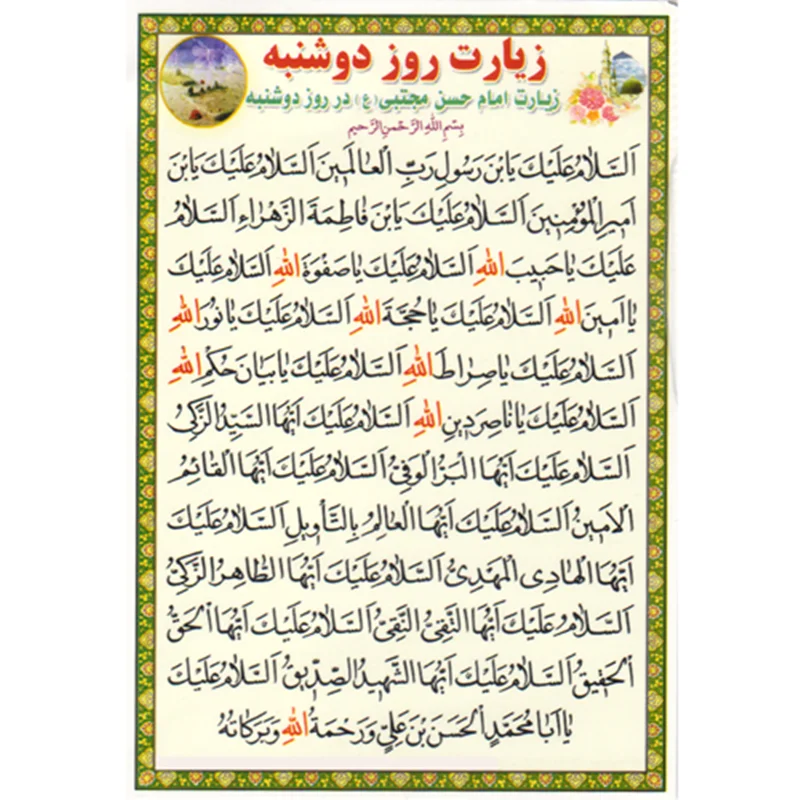 زیارت روز دوشنبه
زیارت امام حسن مجتبی (ع) در روز دوشنبه
بِسْمِ اللهِ الرَّحْمنِ الرَّحیمِ
اَلسَّلامُ عَلَیْكَ یَابْنَ رَسُولِ رَبِّ الْعالَمینَ اَلسَّلامُ عَلَیْكَ یَابْنَ
اَمیرِ الْمُؤْمِنینَ اَلسَّلامُ عَلَیْكَ یَابْنَ فاطِمَةَ الزَّهْراءِ اَلسَّلامُ
عَلَیْكَ یا حَبیبَ اللهِ اَلسَّلامُ عَلَیْكَ یا صَفْوَةَ اللهِ اَلسَّلامُ عَلَیْكَ
یا اَمینَ اللهِ اَلسَّلامُ عَلَیْكَ یا حُجَّةَ اللهِ اَلسَّلامُ عَلَیْكَ یا نُورَ اللهِ
اَلسَّلامُ عَلَیْكَ یا صِراطَ اللهِ اَلسَّلامُ عَلَیْكَ یا بَیانَ حُكْمِ اللهِ
اَلسَّلامُ عَلَیْكَ یا ناصِرَ دینِ اللهِ اَلسَّلامُ عَلَیْكَ اَیُّهَا السَّیِّدُ الزَّكِیُّ
اَلسَّلامُ عَلَیْكَ اَیُّهَا الْبَرُّ الْوَفِیُّ اَلسَّلامُ عَلَیْكَ اَیُّهَا الْقائِمُ
الْاَمینُ اَلسَّلامُ عَلَیْكَ اَیُّهَا الْعالِمُ بِالتَّأْویلِ اَلسَّلامُ عَلَیْكَ
اَیُّهَا الْهادِی الْمَهْدِیُّ اَلسَّلامُ عَلَیْكَ اَیُّهَا الطّاهِرُ الزَّكِیُّ
اَلسَّلامُ عَلَیْكَ اَیُّهَا التَّقِیُّ النَّقِیُّ اَلسَّلامُ عَلَیْكَ اَیُّهَا الْحَقُّ
الْحَقیقُ اَلسَّلامُ عَلَیْكَ اَیُّهَا الشَّهیدُ الصِّدّیقُ اَلسَّلامُ عَلَیْكَ
یا اَبا مُحَمَّدٍ الْحَسَنَ بْنَ عَلِیٍّ وَ رَحْمَةُ اللهِ وَ بَرَكاتُهُ